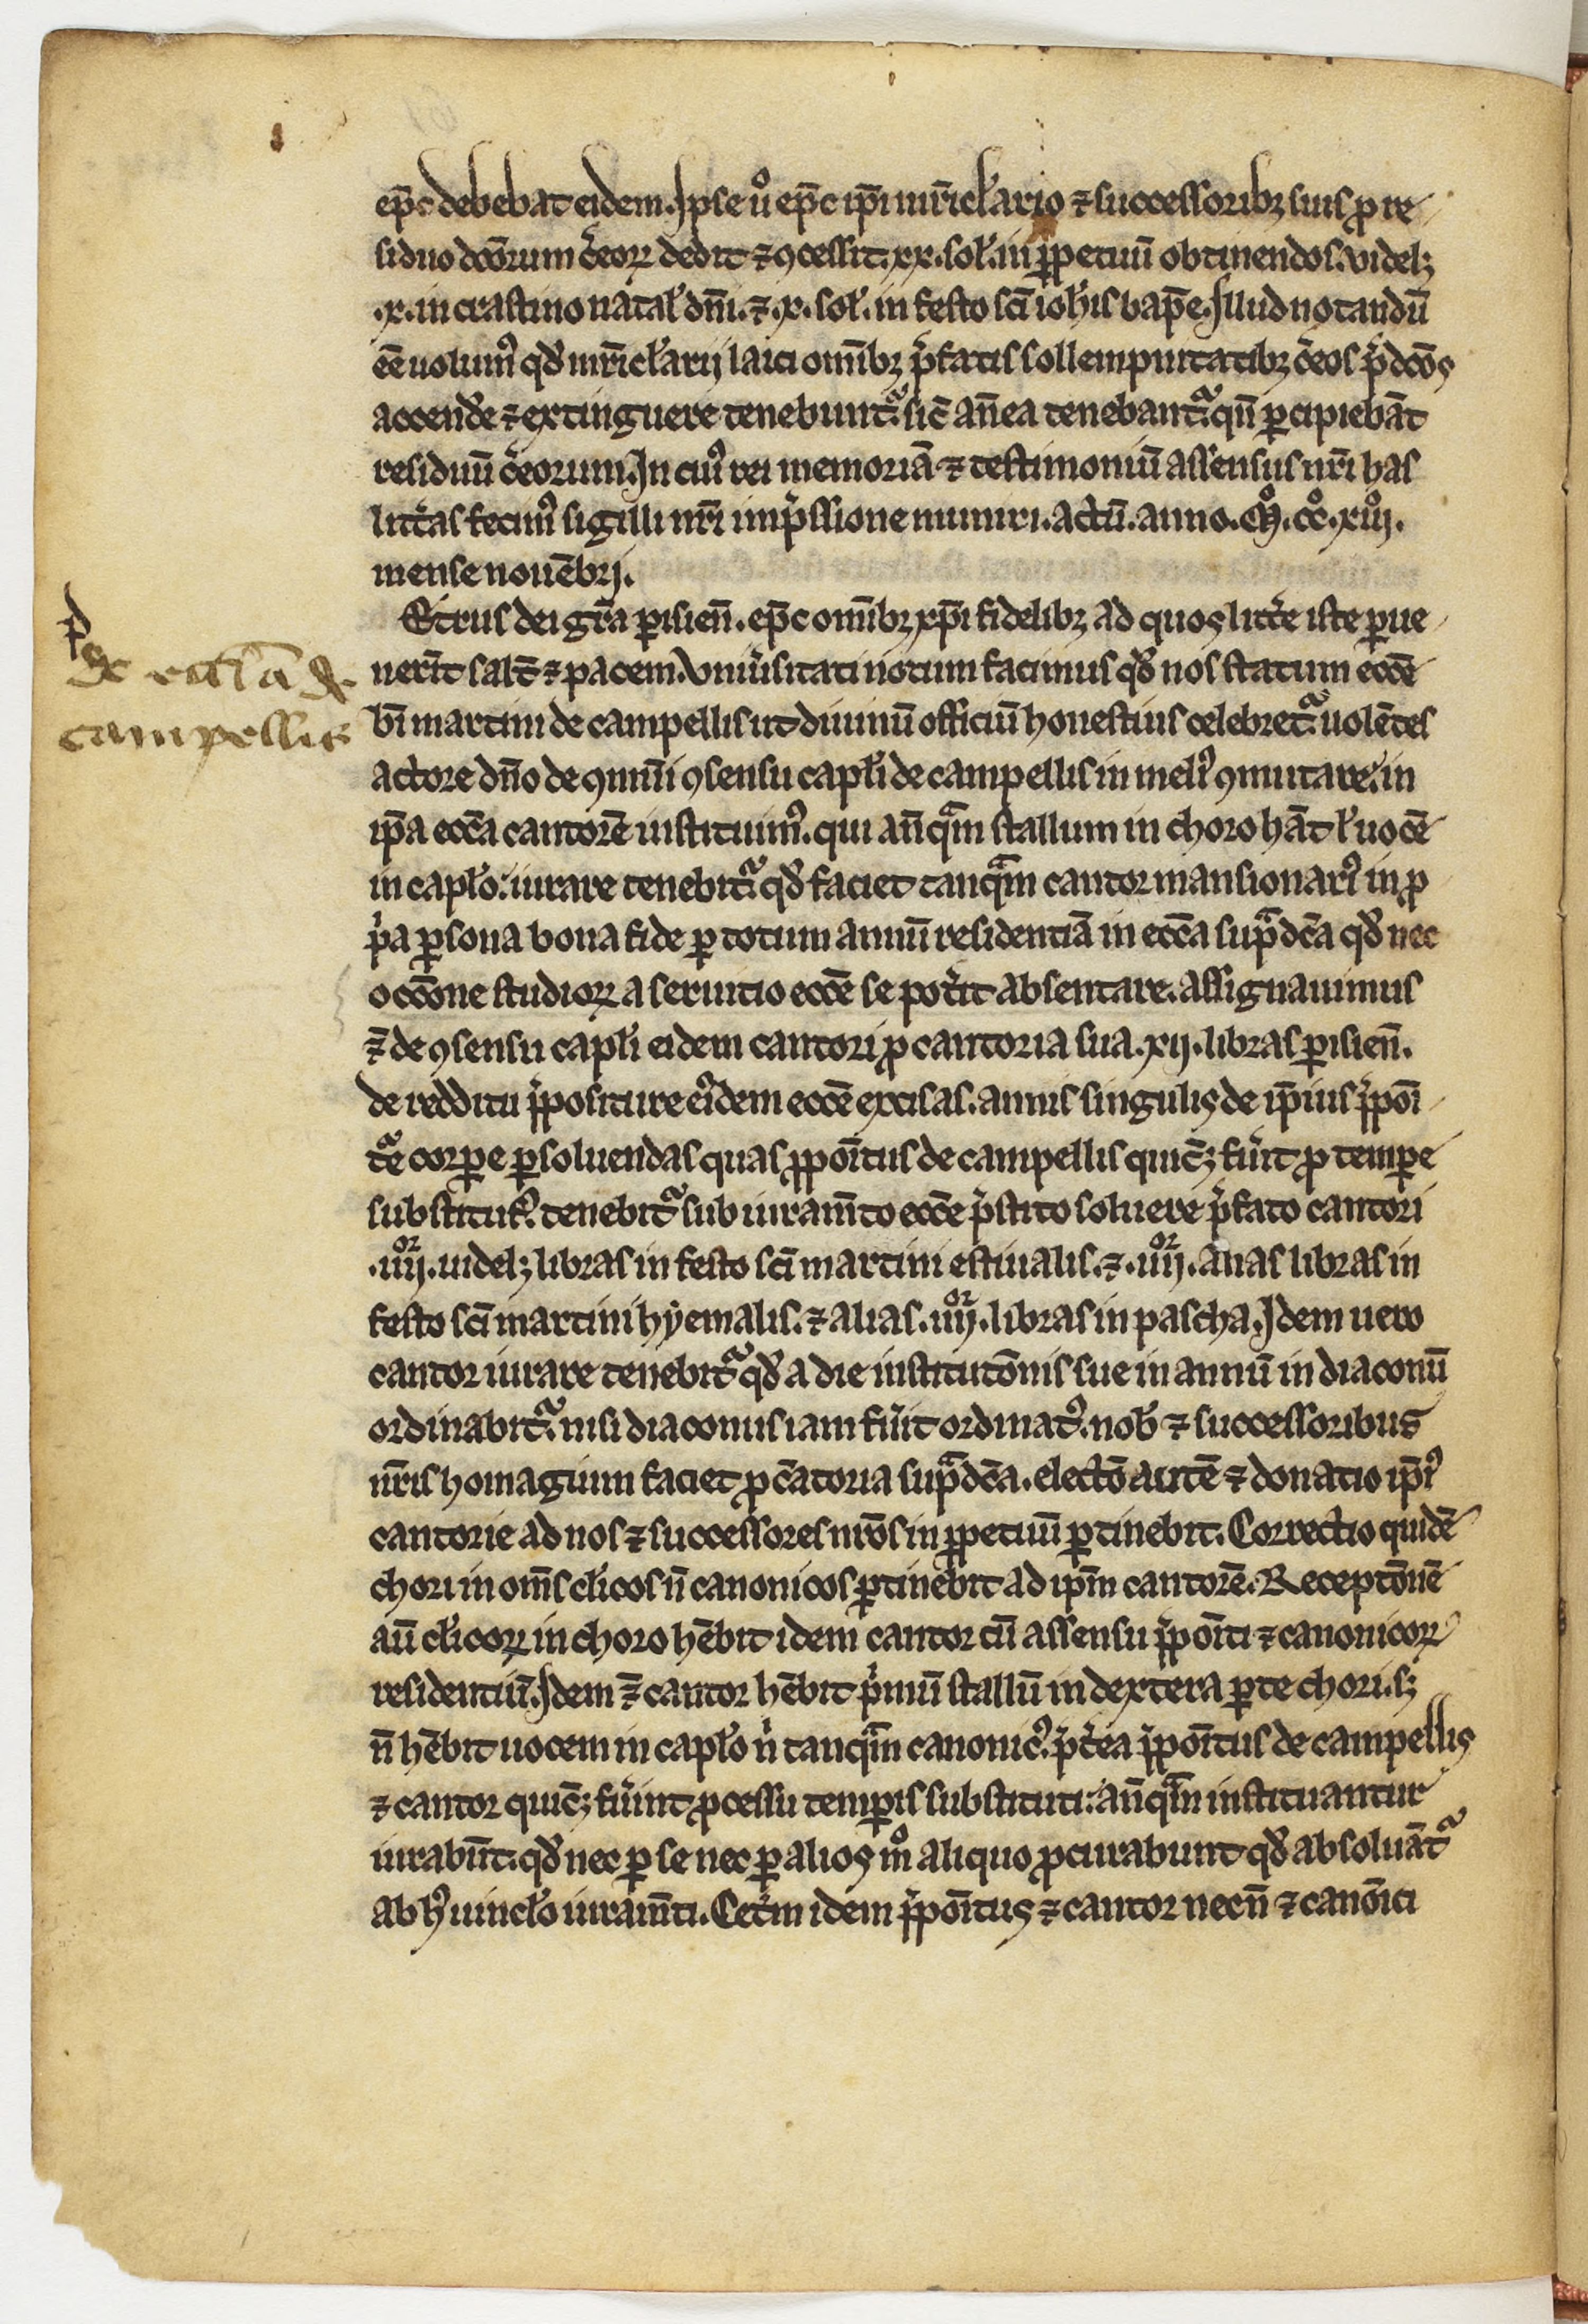 ep̄c debebat eidem. Ipse ů ep̄c ip̄i mr̄icl'ario ⁊ successoribꝫ suis ꝓ re
siduo dc̄orum c̾eoꝝ dedit ⁊ ꝯcessit .xx. sol'. in ꝑpetuū obtinendos. videlꝫ
.x. in crastino natal' dn̄i. ⁊ .x. sol'. in festo sc̄i ioh'is bap̄e. Illud notandū
eē uolum᾽ qd' mr̄icl'arij laici om̄ibꝫ p̾fatis sollempnitatibꝫ c̾eos p̾dc̄os
accend'e ⁊ extinguere tenebunt᷑. sic̄ an̄ea tenebant᷑. qn̄ ꝑcipiebāt
residuū c̾eorum. In cui᾽ rei memoriā ⁊ testimoniū assensus nr̄i has
litt'as fecim᾽ sigilli nr̄i imp̾ssione muniri. actū. anno. mͦ. ccͦ. xiijͦ.
mense nouēbrj.
p
Etrus dei gr̄a ꝑisien̄. ep̄c om̄ibꝫ xp̄i fidelibꝫ ad quos litt'e iste ꝑue
de eccl'ia de
campellis
nerīt salt̄ ⁊ pacem. Vniu'sitati notum facimus qd' nos statum ecc̄e
bī martini de campellis ut diuinū officiū honestius celebret᷑ uolētes
actore dn̄o de ꝯmuni ꝯsensu capl'i de campellis in meli᾽ ꝯmutare. in
ip̄a ecc̄a cantorē instituim᾽. qui an̄qᷓm stallum in choro hāt l' uocē
in capl'o. iurare tenebit᷑ qd' faciet tanqᷓm cantor mansionari᾽ in ꝓ
p̾a ꝑsona bona fide ꝑ totum annū residentiā in ecc̄a sup̄dc̄a qd' nec
occōne studioꝝ a seruitio ecc̄e se pot'it absentare. assignauimus
⁊̄ de ꝯsensu capl'i eidem cantori ꝓ cantoria sua .xij. libras ꝑisien̄.
de redditu p̾positure ei᾽dem ecc̄e excisas. annis singulis de ip̄ius p̾poī
tᷓe corꝑe ꝑsoluendas quas p̾poītus de campellis quic̄ꝫ fu'it ꝓ temꝑe
substitut᾽. tenebit᷑ sub iuram̄to ecc̄e p̾stito soluere p̾fato cantori
.iiijoꝝ. uidelꝫ libras in festo sc̄i martini estiualis. ⁊ .iiijoꝝ. alias libras in
festo sc̄i martini hyemalis. ⁊ alias .iiijoꝝ. libras in pascha. Idem uero
cantor iurare tenebit᷑ qd' a die institutōnis sue in annū in diaconū
ordinabit᷑. nisi diaconus iam fu'it ordinat᾽. nob' ⁊ successoribus
nr̄is homagium faciet ꝓ cātoria sup̄dc̄a. electō autē ⁊ donatio ip̄i᾽
cantorie ad nos ⁊ successores nr̄os in ꝑpetuū ꝑtinebit. Correctio quidē
chori in om̄s cl'icos n̄ canonicos ꝑtinebit ad ip̄m cantorē. Receptōnē
aū cl'icoꝝ in choro hēbit idem cantor cū assensu p̾poīti ⁊ canonicoꝝ
residentiū. Idem ⁊̄ cantor hēbit p̾mū stallū in dextera ꝑte chori. sꝫ
n̄ hēbit uocem in capl'o n' tanqᷓm canonic᾽. p̾t'ea p̾poītus de campellis
⁊ cantor quic̄ꝫ fu'int ꝓcessu temꝑis substituti: an̄qᷓm instituantur
iurabūt. qd' nec ꝑ se nec ꝑ alios mͦ aliquo ꝓcurabunt qd' absoluāt᷑
ab h᾽ uincl'o iuram̄ti. Cet'm idem p̾poītus ⁊ cantor necn̄ ⁊ canōici